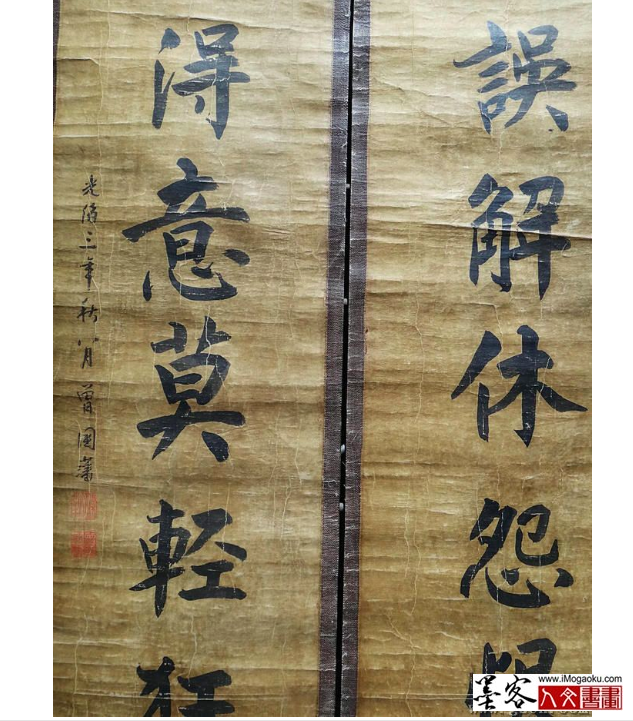 誤解休怨
得意莫輕狂
光緒三年秋八月曾國藩
墨客
www.iMogaoku.com
人文書畫